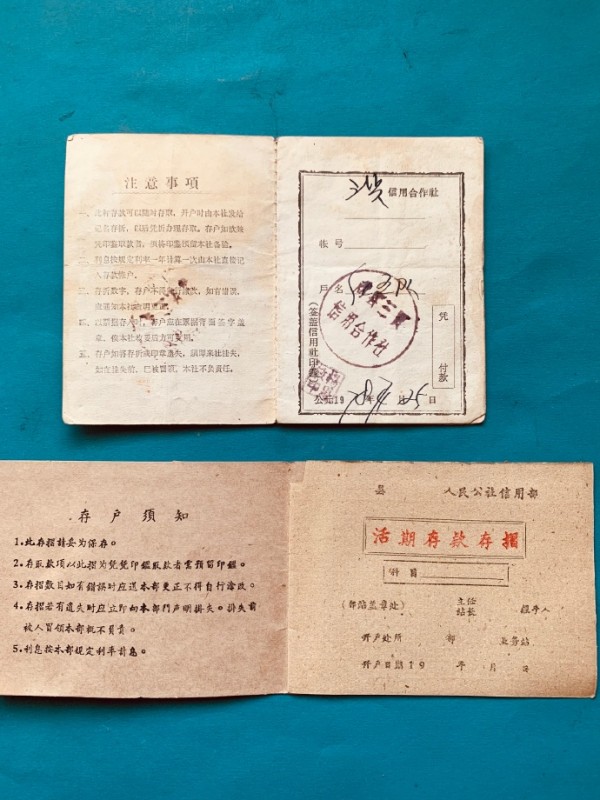 注意事项
一、此种存款可以随时存取,开户时由本社发给
记名存折,以后凭折办理存取。存户如欲凭
印鉴取款者,须将印鉴预留本社备验。
二、利息按规定利率一年计算一次由本社直接记
入存款帐户。
三、存折数字,存户不得自行涂改,如有错误,
四、以票据存入时,存户应在票据背面签字盖
章,俟本社收妥后方可支用。
五、存户如将存折或印章遗失,请即来社挂失,
如在挂失前,已被冒领,本社不负责任。
信用合作社
帐号
户名
三贤
信用合作社
(签盖信用社印章)
凭
付款
公元1978年4月25日
存户须知
1.此存摺请妥为保存。
2.存取款项以此摺为凭凭印鉴取款者需预留印鑑。
3.存摺数目如有错误时应送本部更正不得自行涂改。
4.存摺若有遗失时应立即向本部门声明掛失。掛失前
被人冒领本部概不负责。
5.利息按本部规定利率计息。
县 人民公社信用部
活期存款存摺
科目
(部站盖章处) 主任 站长 经手人
开户处所 部 业务站
开户日期19 年 月 日